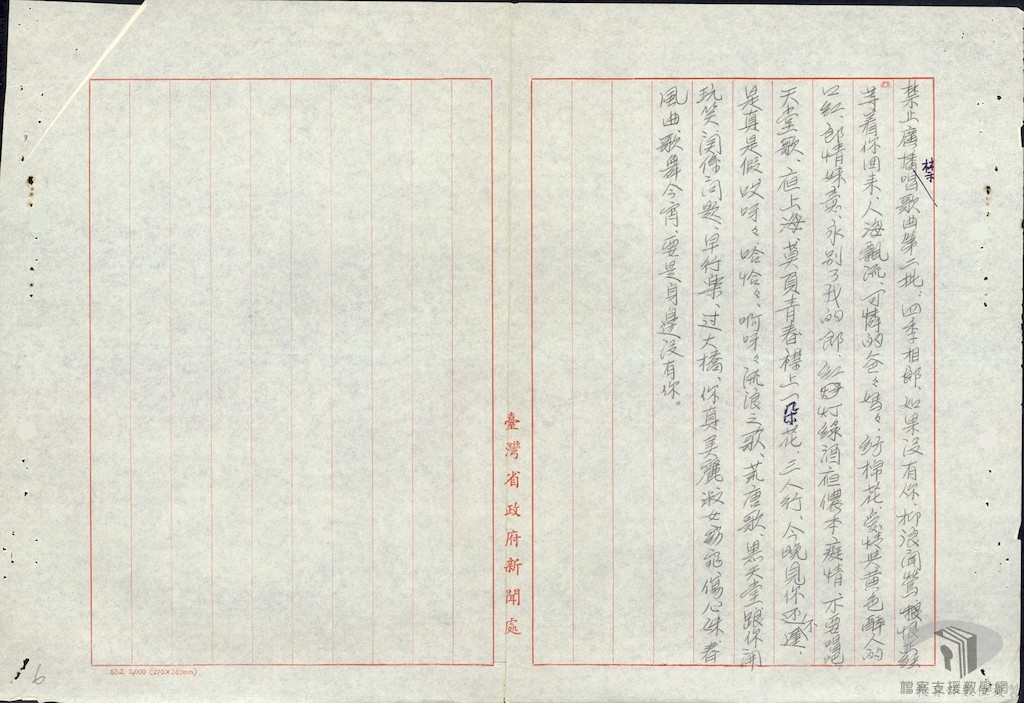 禁止廣播唱歌曲第二批：四季相郎、如果沒有你、柳浪聞鶯、恨
禁
等着你回来、人海飄流、可憐的爸々媽々、紡棉花、愛情與黃色、醉人的
口紅、郎情妹意、永别了我的郎、紅灯綠酒夜、儂本痴情、不要唱吧、
天堂歌、夜上海、莫負青春、襟上一朵花、三人行、今晚見你还不遲、
是真是假、哎呀々、哈哈々、啊呀々、流浪之歌、荒唐歌、黑天堂、跟你開
玩笑、関係问題、早行樂、过大橋、你真美麗、淑女窈窕、傷心、春
風曲、歌舞今宵、要是身邊没有你。
臺灣省政府新聞處
53.2. 5,000 (270×385mm)
6
檔案支援教學網